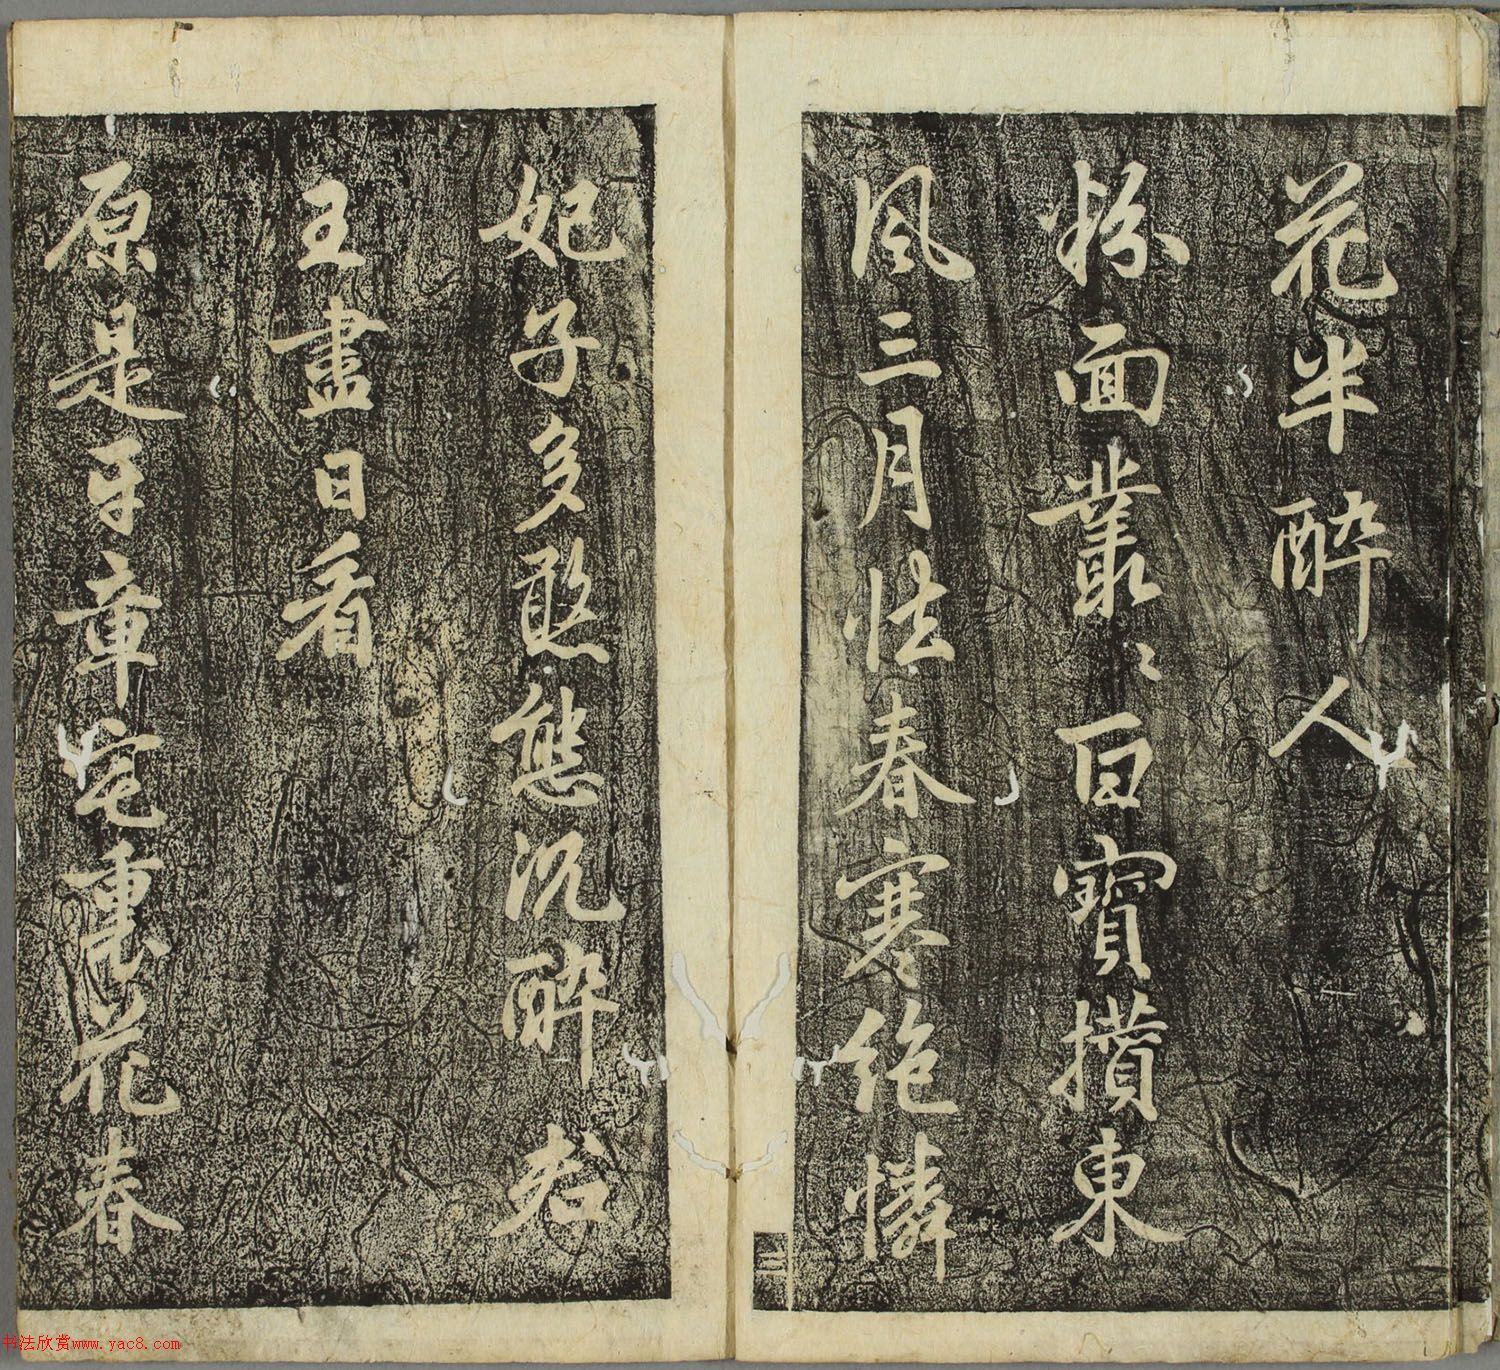 花半醉人
粉面叢〻百寶攢東
風三月怯春寒絶憐
妃子多憨態沉醉君
王盡日看
原是平章宅裏花春
书法欣赏www.yac8.com